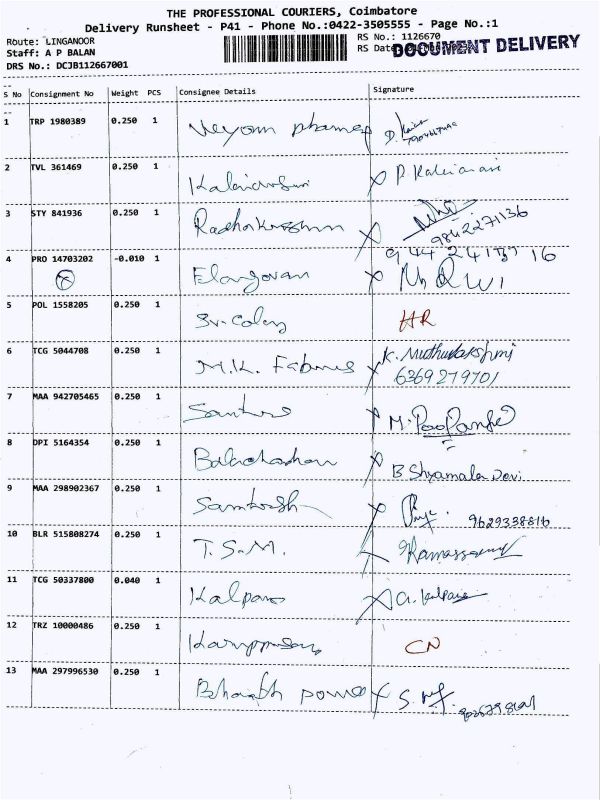 THE PROFESSIONAL COURIERS, Coimbatore
Delivery Runsheet - P41 - Phone No.:0422-3505555 - Page No.:1
Route: LINGANOOR
RS No.: 1126670
Staff: A P BALAN
RS Date
DOCUMENT DELIVERY
DRS No.: DCJB112667001
S No Consignment No Weight PCS Consignee Details Signature
1 TRP 1980389 0.250 1
2 TVL 361469 0.250 1 P. Kaliarani
3 STY 841936 0.250 1 Radhakrishnan
9842271136
4 PRO 14703202 -0.010 1 Elangovan
5 POL 1558205 0.250 1 HR
6 TCG 5044708 0.250 1 M.K. Fabrics K. Muthulakshmi
6369279701
7 MAA 942705465 0.250 1
8 DPI 5164354 0.250 1 B Shyamala Devi
9 MAA 298902367 0.250 1 Santhosh 9629338816
10 BLR 515808274 0.250 1 T.S.M. Ramassamy
11 TCG 50337800 0.040 1 Kalpana a. kalpana
12 TRZ 10000486 0.250 1 CN
13 MAA 297996530 0.250 1 Bharath power